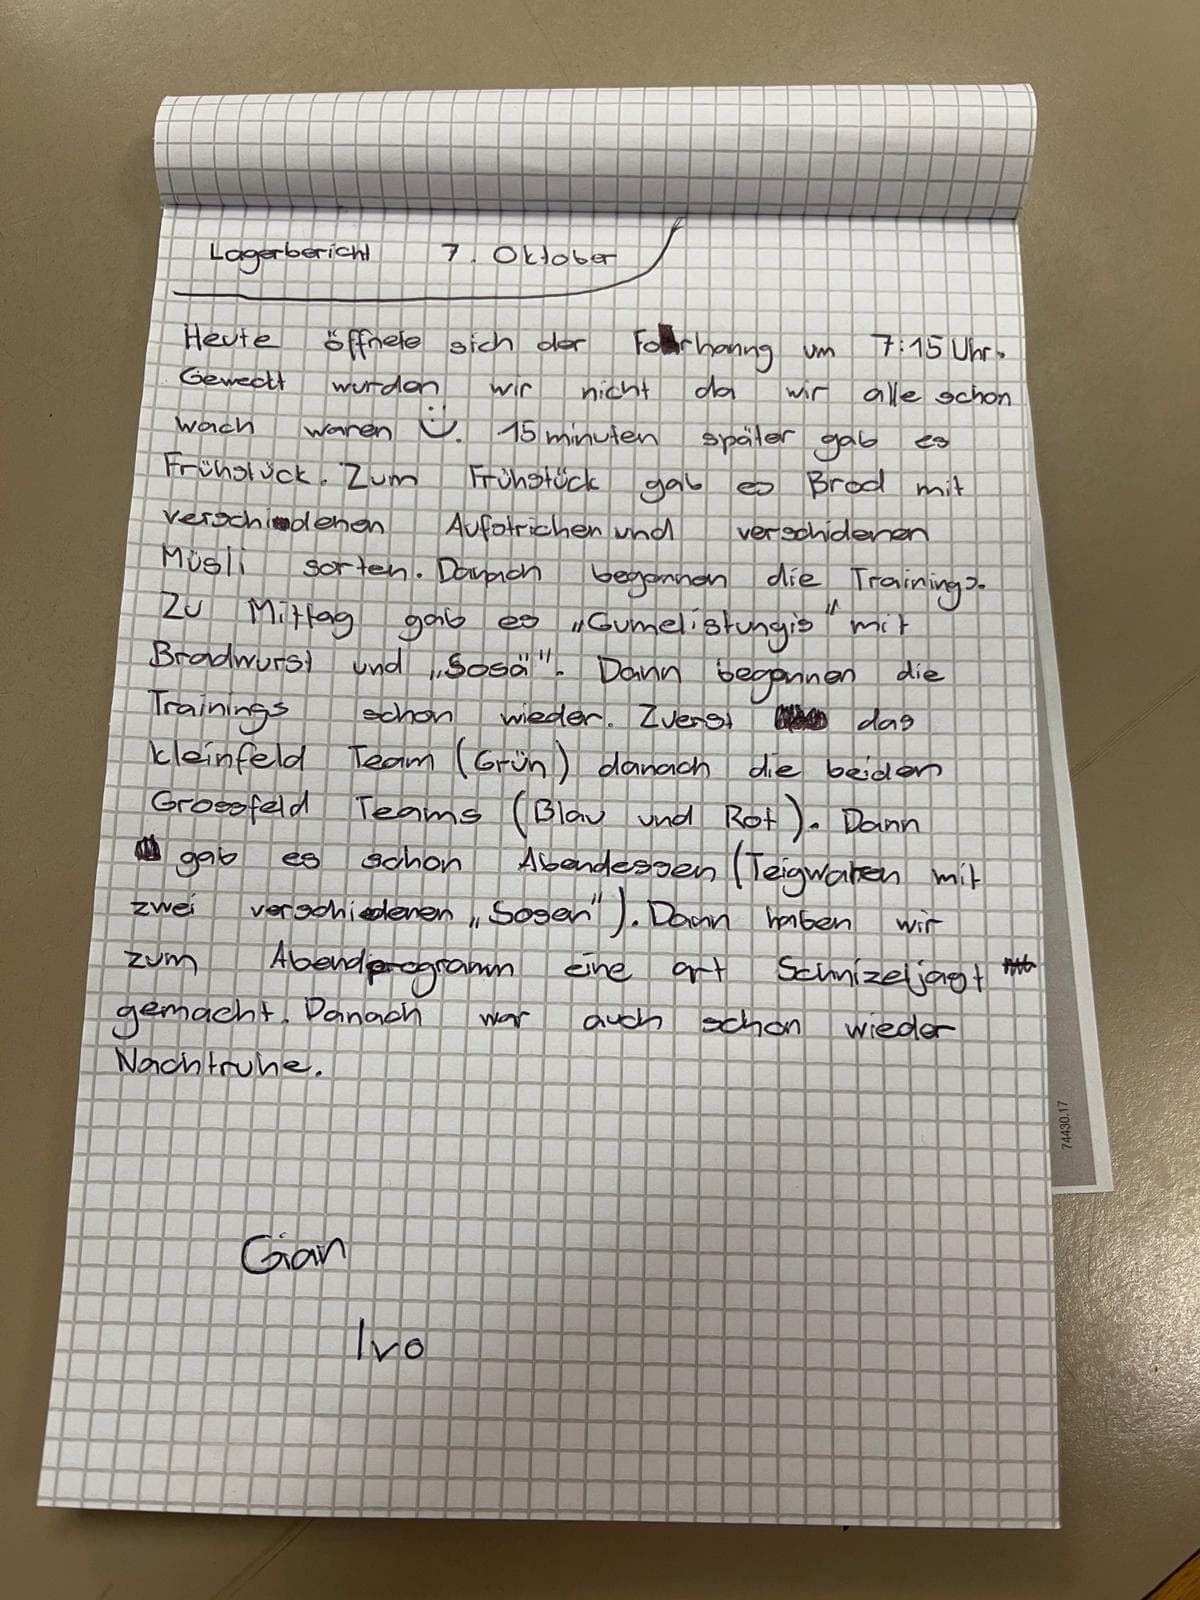 Lagerbericht 7. Oktober
Heute öffnete sich der Forhanng um 7:15 Uhr.
Geweckt wurden wir nicht da wir alle schon
wach waren Ü. 15 minuten später gab es
Frühstück. Zum Frühstück gab es Brod mit
verschidenen Aufstrichen und verschidenen
Müsli sorten. Danach begannen die Trainings.
Zu Mittag gab es „Gumelistungis" mit
Bradwurst und „Sosä". Dann begannen die
Trainings schon wieder. Zuerst das
kleinfeld Team (Grün) danach die beiden
Grossfeld Teams (Blau und Rot). Dann
gab es schon Abendessen (Teigwaren mit
zwei verschiedenen „Sosen"). Dann haben wir
zum Abendprogramm eine art Schnizeljagt
gemacht. Danach war auch schon wieder
Nachtruhe.
Gian
Ivo
74430.17